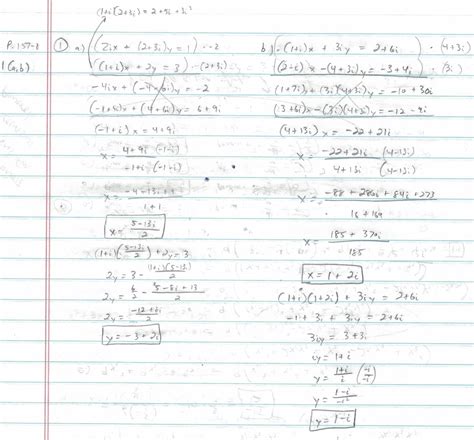 P. 157-8
1(a,b)
(1+i)(2+3i) = 2+5i+3i²
① a) (2ix + (2+3i)y = 1) · -2
((1+i)x + 2y = 3) · (2+3i)
-4ix + (-4-6i)y = -2
(-1+5i)x + (4+6i)y = 6+9i
(-1+i)x = 4+9i
x = 4+9i (-1-i)
-1+i (-1-i)
x = -4-13i+9
1+1
x = 5-13i
2
(1+i)(5-13i
2) + 2y = 3
2y = 3 - (1+i)(5-13i)
2
2y = 6
2 - 5-8i+13
2
2y = -12+8i
2
y = -3+2i
b) (1+i)x + 3iy = 2+6i · (4+3i)
(2-i)x - (4+3i)y = -3+4i · (3i)
(1+7i)x + (3i)(4+3i)y = -10+30i
(3+6i)x - (3i)(4+3i)y = -12-9i
(4+13i)x = -22+21i
x = -22+21i (4-13i)
4+13i (4-13i)
x = -88+286i+84i+273
16+169
x = 185+370i
185
x = 1+2i
(1+i)(1+2i) + 3iy = 2+6i
-1+3i + 3iy = 2+6i
3iy = 3+3i
iy = 1+i
y = 1+i
i (-i
-i)
y = 1-i
-i²
y = 1-i